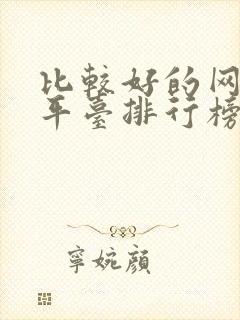 比較好的网
平臺排行榜
寧婉顔